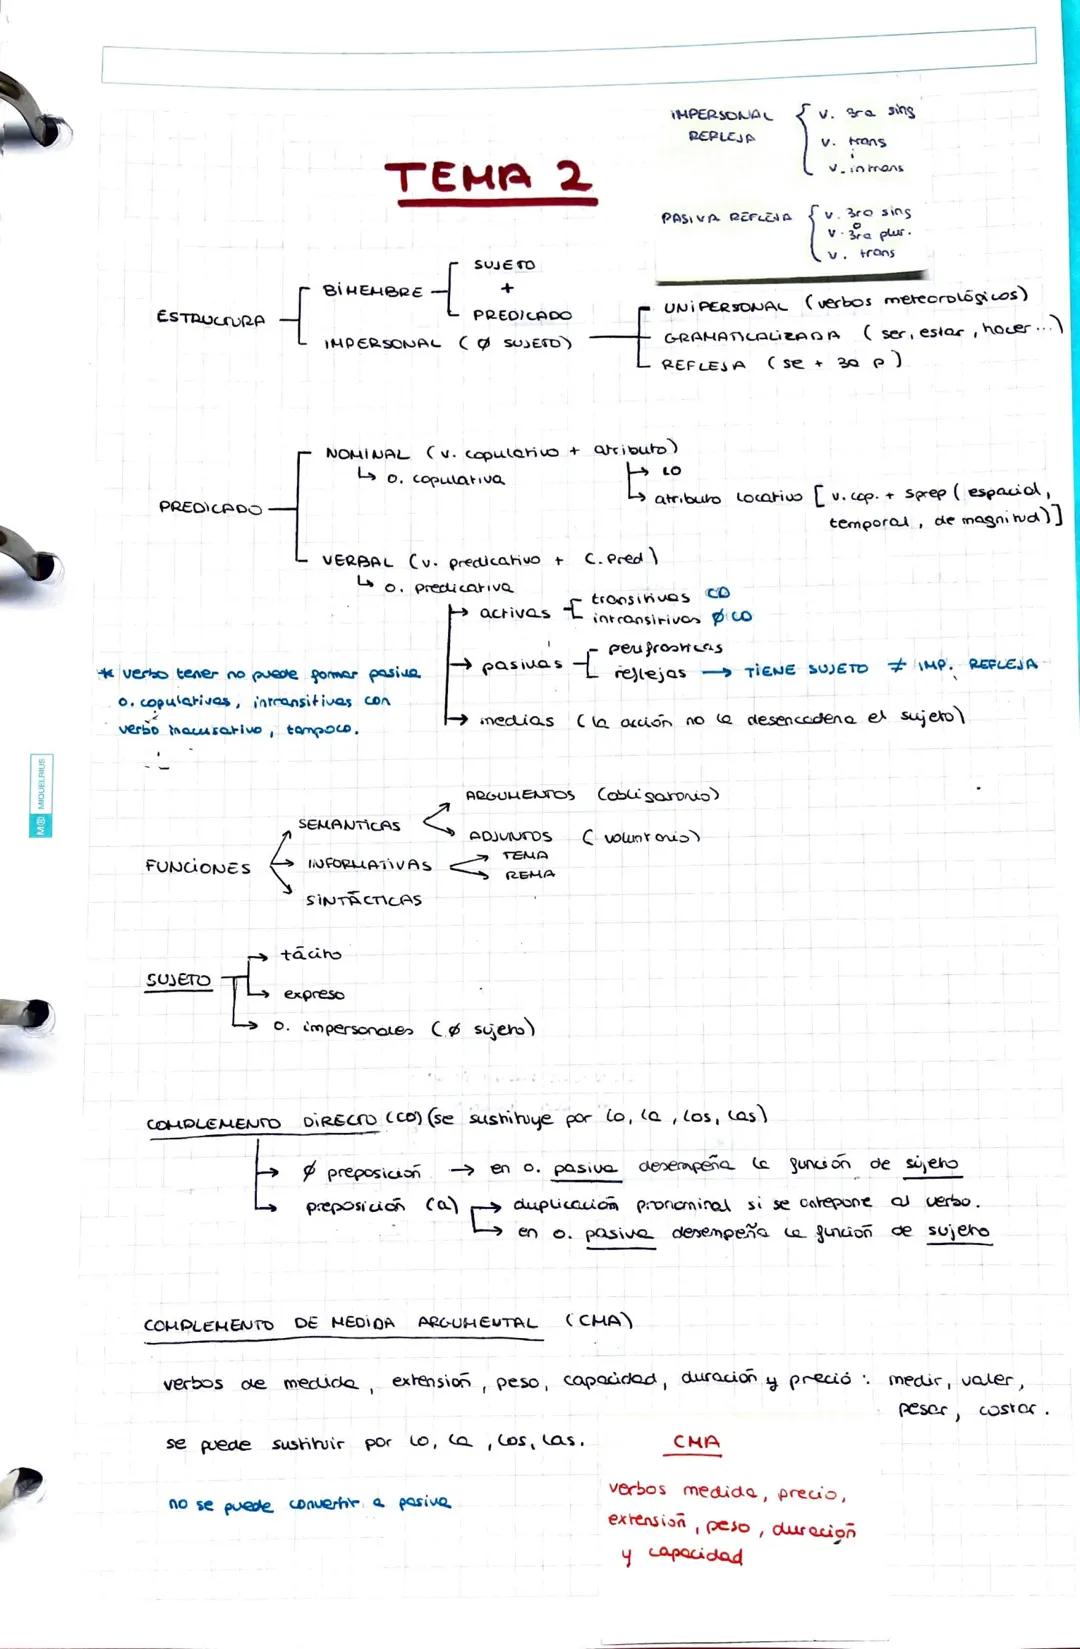 IMPERSONAL REFLEJA { v. 3ra sing
v. trans
i
v. intrans
TEMA 2
PASIVA REFLEJA { v. 3ra sing
o
v. 3ra plur.
v. trans
ESTRUCTURA
BIMEMBRE
SUJETO
+
PREDICADO
IMPERSONAL (Ø SUJETO)
UNIPERSONAL (verbos meteorológicos)
GRAMATICALIZADA (ser, estar, hacer...)
REFLEJA (se + 3a p)
PREDICADO
NOMINAL (v. copulativo + atributo)
↳ o. copulativa
↳ LO
↳ atributo locativo [v. cop. + Sprep (espacial,
temporal, de magnitud)]
VERBAL (v. predicativo + C. Pred)
↳ o. predicativa
→ activas
transitivas CD
intransitivas Ø CD
→ pasivas
perifrásticas
reflejas → TIENE SUJETO ≠ IMP. REFLEJA
→ medias (la acción no la desencadena el sujeto)
* verbo tener no puede formar pasiva
o. copulativas, intransitivas con
verbo inacusativo, tampoco.
MIQUELRIUS
FUNCIONES
SEMANTICAS
ARGUMENTOS (obligatorio)
ADJUNTOS (voluntario)
→ INFORMATIVAS
TEMA
REMA
SINTÁCTICAS
SUJETO
→ tácito
→ expreso
→ o. impersonales (Ø sujeto)
COMPLEMENTO DIRECTO (CD) (se sustituye por lo, la, los, las)
→ Ø preposición → en o. pasiva desempeña la función de sujeto
→ preposición (a) → duplicación pronominal si se antepone al verbo.
→ en o. pasiva desempeña la función de sujeto
COMPLEMENTO DE MEDIDA ARGUMENTAL (CMA)
verbos de medida, extensión, peso, capacidad, duración y precio: medir, valer,
pesar, costar.
se puede sustituir por lo, la, los, las.
no se puede convertir a pasiva
CMA
verbos medida, precio,
extensión, peso, duración
y capacidad